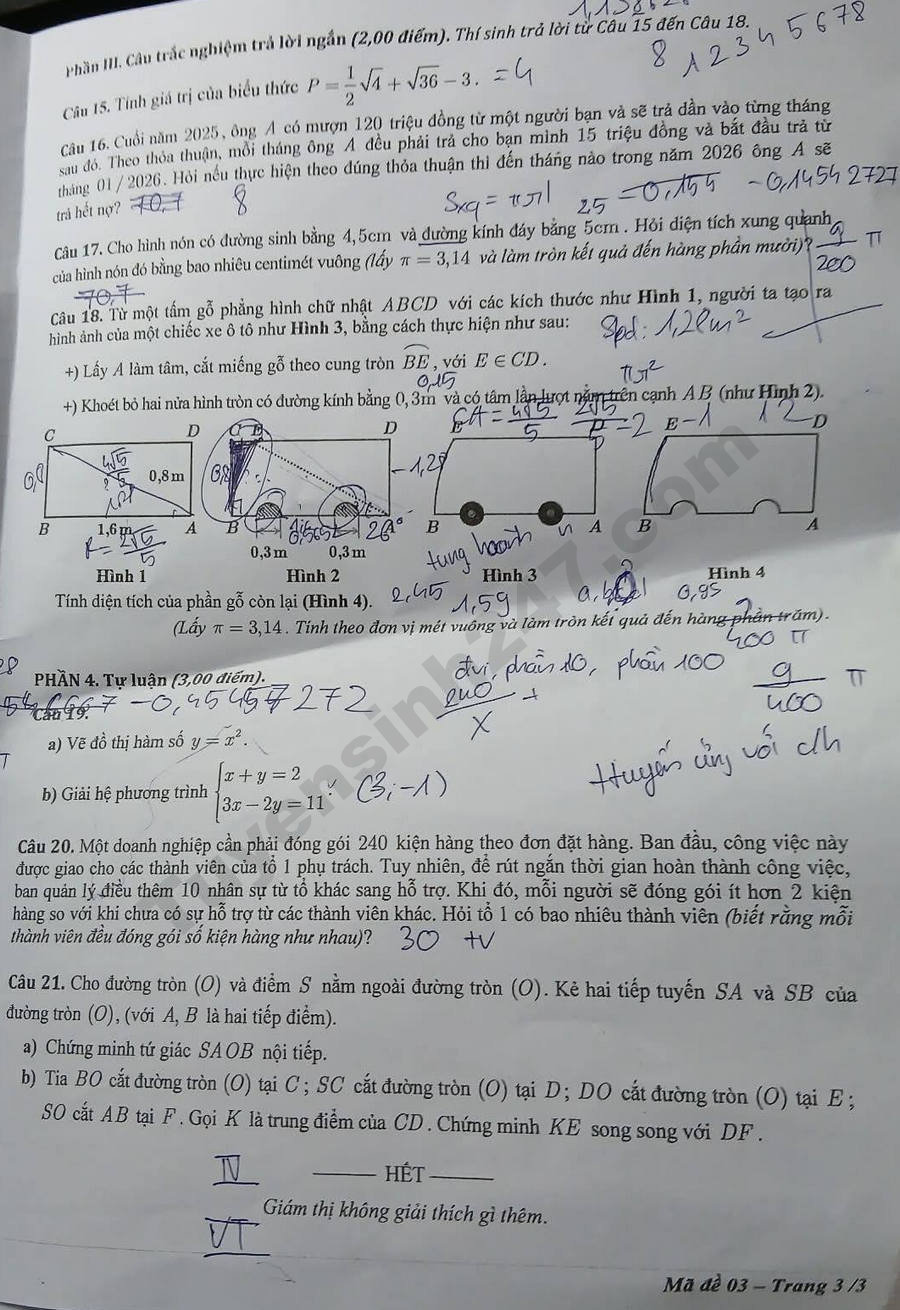 Phần III. Câu trắc nghiệm trả lời ngắn (2,00 điểm). Thí sinh trả lời từ Câu 15 đến Câu 18.
8 1 2 3 4 5 6 7 8
Câu 15. Tính giá trị của biểu thức P = 1/2 √4 + √36 − 3. = 4
Câu 16. Cuối năm 2025, ông A có mượn 120 triệu đồng từ một người bạn và sẽ trả dần vào từng tháng
sau đó. Theo thỏa thuận, mỗi tháng ông A đều phải trả cho bạn mình 15 triệu đồng và bắt đầu trả từ
tháng 01 / 2026. Hỏi nếu thực hiện theo đúng thỏa thuận thì đến tháng nào trong năm 2026 ông A sẽ
trả hết nợ? 70,7 8
Sxq = πrl 25 −0,155 −0,14542727
Câu 17. Cho hình nón có đường sinh bằng 4,5cm và đường kính đáy bằng 5cm. Hỏi diện tích xung quanh
của hình nón đó bằng bao nhiêu centimét vuông (lấy π = 3,14 và làm tròn kết quả đến hàng phần mười)?
9/200 π
70,7
Câu 18. Từ một tấm gỗ phẳng hình chữ nhật ABCD với các kích thước như Hình 1, người ta tạo ra
hình ảnh của một chiếc xe ô tô như Hình 3, bằng cách thực hiện như sau:
Spd: 1,28m²
+) Lấy A làm tâm, cắt miếng gỗ theo cung tròn BE, với E ∈ CD.
0,15 πr²
+) Khoét bỏ hai nửa hình tròn có đường kính bằng 0,3m và có tâm lần lượt nằm trên cạnh AB (như Hình 2).
CA = 4√5/5 2√5/5 = 2 −1 12
C D C E D E D E D
0,8 4√5/5 0,8m 0,8 −1,28
B 1,6m A B A B A B A
R = 2√5/5 0,565 26°
0,3m 0,3m
tung hoành
Hình 1 Hình 2 Hình 3 Hình 4
Tính diện tích của phần gỗ còn lại (Hình 4). 2,45 1,59 0,95
(Lấy π = 3,14. Tính theo đơn vị mét vuông và làm tròn kết quả đến hàng phần trăm).
400 π
đvị, phần 10, phần 100
PHẦN 4. Tự luận (3,00 điểm).
−0,45457272 240/x + 9/400 π
Câu 19.
a) Vẽ đồ thị hàm số y = x².
b) Giải hệ phương trình { x + y = 2
3x − 2y = 11 . (3; −1)
Câu 20. Một doanh nghiệp cần phải đóng gói 240 kiện hàng theo đơn đặt hàng. Ban đầu, công việc này
được giao cho các thành viên của tổ 1 phụ trách. Tuy nhiên, để rút ngắn thời gian hoàn thành công việc,
ban quản lý điều thêm 10 nhân sự từ tổ khác sang hỗ trợ. Khi đó, mỗi người sẽ đóng gói ít hơn 2 kiện
hàng so với khi chưa có sự hỗ trợ từ các thành viên khác. Hỏi tổ 1 có bao nhiêu thành viên (biết rằng mỗi
thành viên đều đóng gói số kiện hàng như nhau)? 30 tv
Câu 21. Cho đường tròn (O) và điểm S nằm ngoài đường tròn (O). Kẻ hai tiếp tuyến SA và SB của
đường tròn (O), (với A, B là hai tiếp điểm).
a) Chứng minh tứ giác SAOB nội tiếp.
b) Tia BO cắt đường tròn (O) tại C; SC cắt đường tròn (O) tại D; DO cắt đường tròn (O) tại E;
SO cắt AB tại F. Gọi K là trung điểm của CD. Chứng minh KE song song với DF.
IV
HẾT
Giám thị không giải thích gì thêm.
VT
Mã đề 03 – Trang 3/3
Tuyensinh247.com